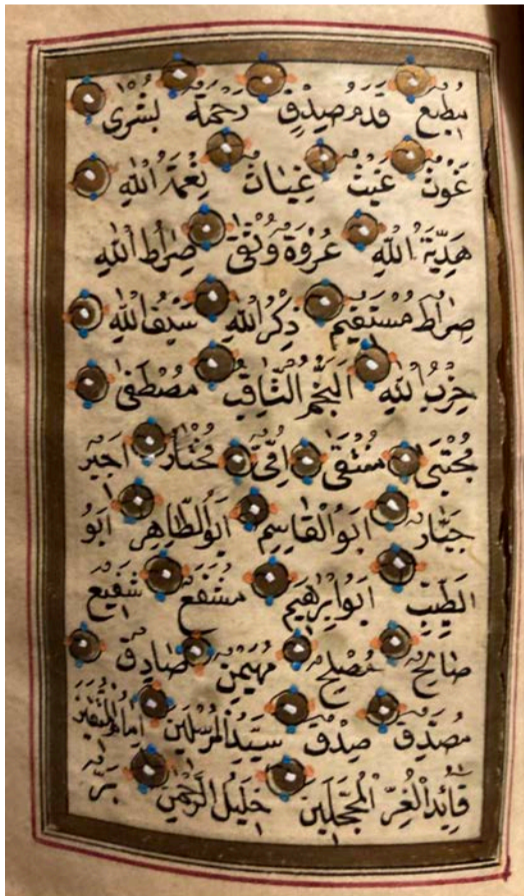 مُطِيعٌ قَدَمُ صِدْقٍ رَحْمَةٌ بُشْرٰى
غَوْثٌ غَيْثٌ غِيَاثٌ نِعْمَةُ اللّٰهِ
هَدِيَّةُ اللّٰهِ عُرْوَةٌ وُثْقٰى صِرَاطُ اللّٰهِ
صِرَاطٌ مُسْتَقِيمٌ ذِكْرُ اللّٰهِ سَيْفُ اللّٰهِ
حِزْبُ اللّٰهِ اَلنَّجْمُ الثَّاقِبُ مُصْطَفٰى
مُجْتَبٰى مُنْتَقٰى اُمِّيٌّ مُخْتَارٌ اَجِيرٌ
جَبَّارٌ اَبُو الْقَاسِمِ اَبُو الطَّاهِرِ اَبُو
الطَّيِّبِ اَبُو اِبْرٰهِيمَ مُشَفَّعٌ شَفِيعٌ
صَالِحٌ مُصْلِحٌ مُهَيْمِنٌ صَادِقٌ
مُصَدِّقٌ صِدْقٌ سَيِّدُ الْمُرْسَلِينَ اِمَامُ الْمُتَّقِينَ
قَائِدُ الْغُرِّ الْمُحَجَّلِينَ خَلِيلُ الرَّحْمٰنِ بَرٌّ